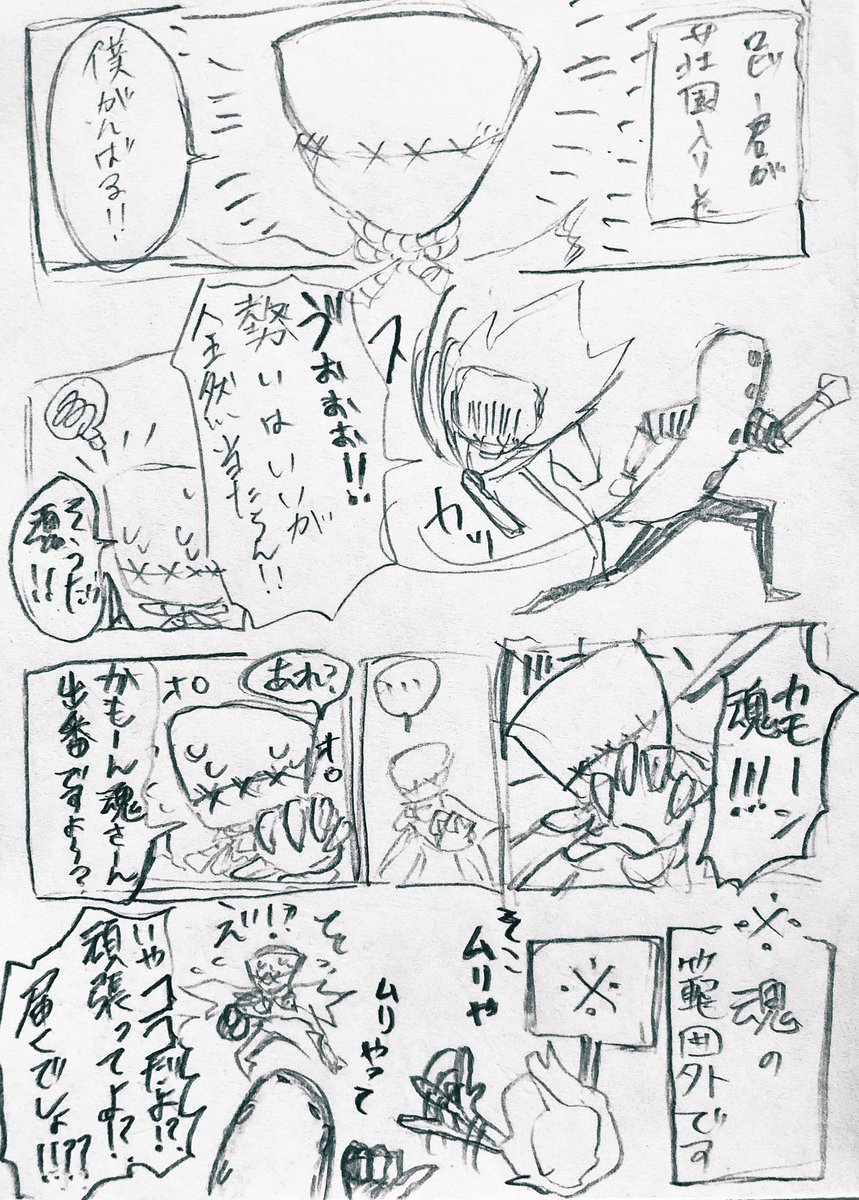 ロビー君が
荘園入りした
僕がんばる!!
スカッ
ゔおぉぉ!!
勢いはいいが
全然当たらん!!
そうだ
魂!!
カモーン
魂!!!
・・・
あれ?
オロ
オロ
かもーん魂さん
出番ですよぅ?
※魂の
範囲外です
※
そこ
ムリや
ムリやって
てそっ
え!?
いやココだよ!?
頑張ってよ!?
届くでしょ!!??